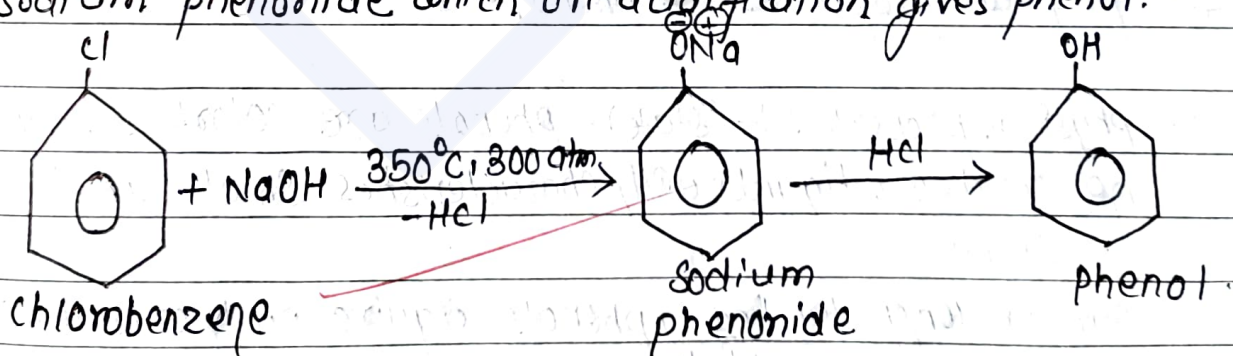 sodium phenoonide which on acidification gives phenol.
Cl
⊖ ⊕
ONa
OH
+ NaOH
350°C, 300 atm.
-HCl
HCl
chlorobenzene
sodium
phenonide
phenol.